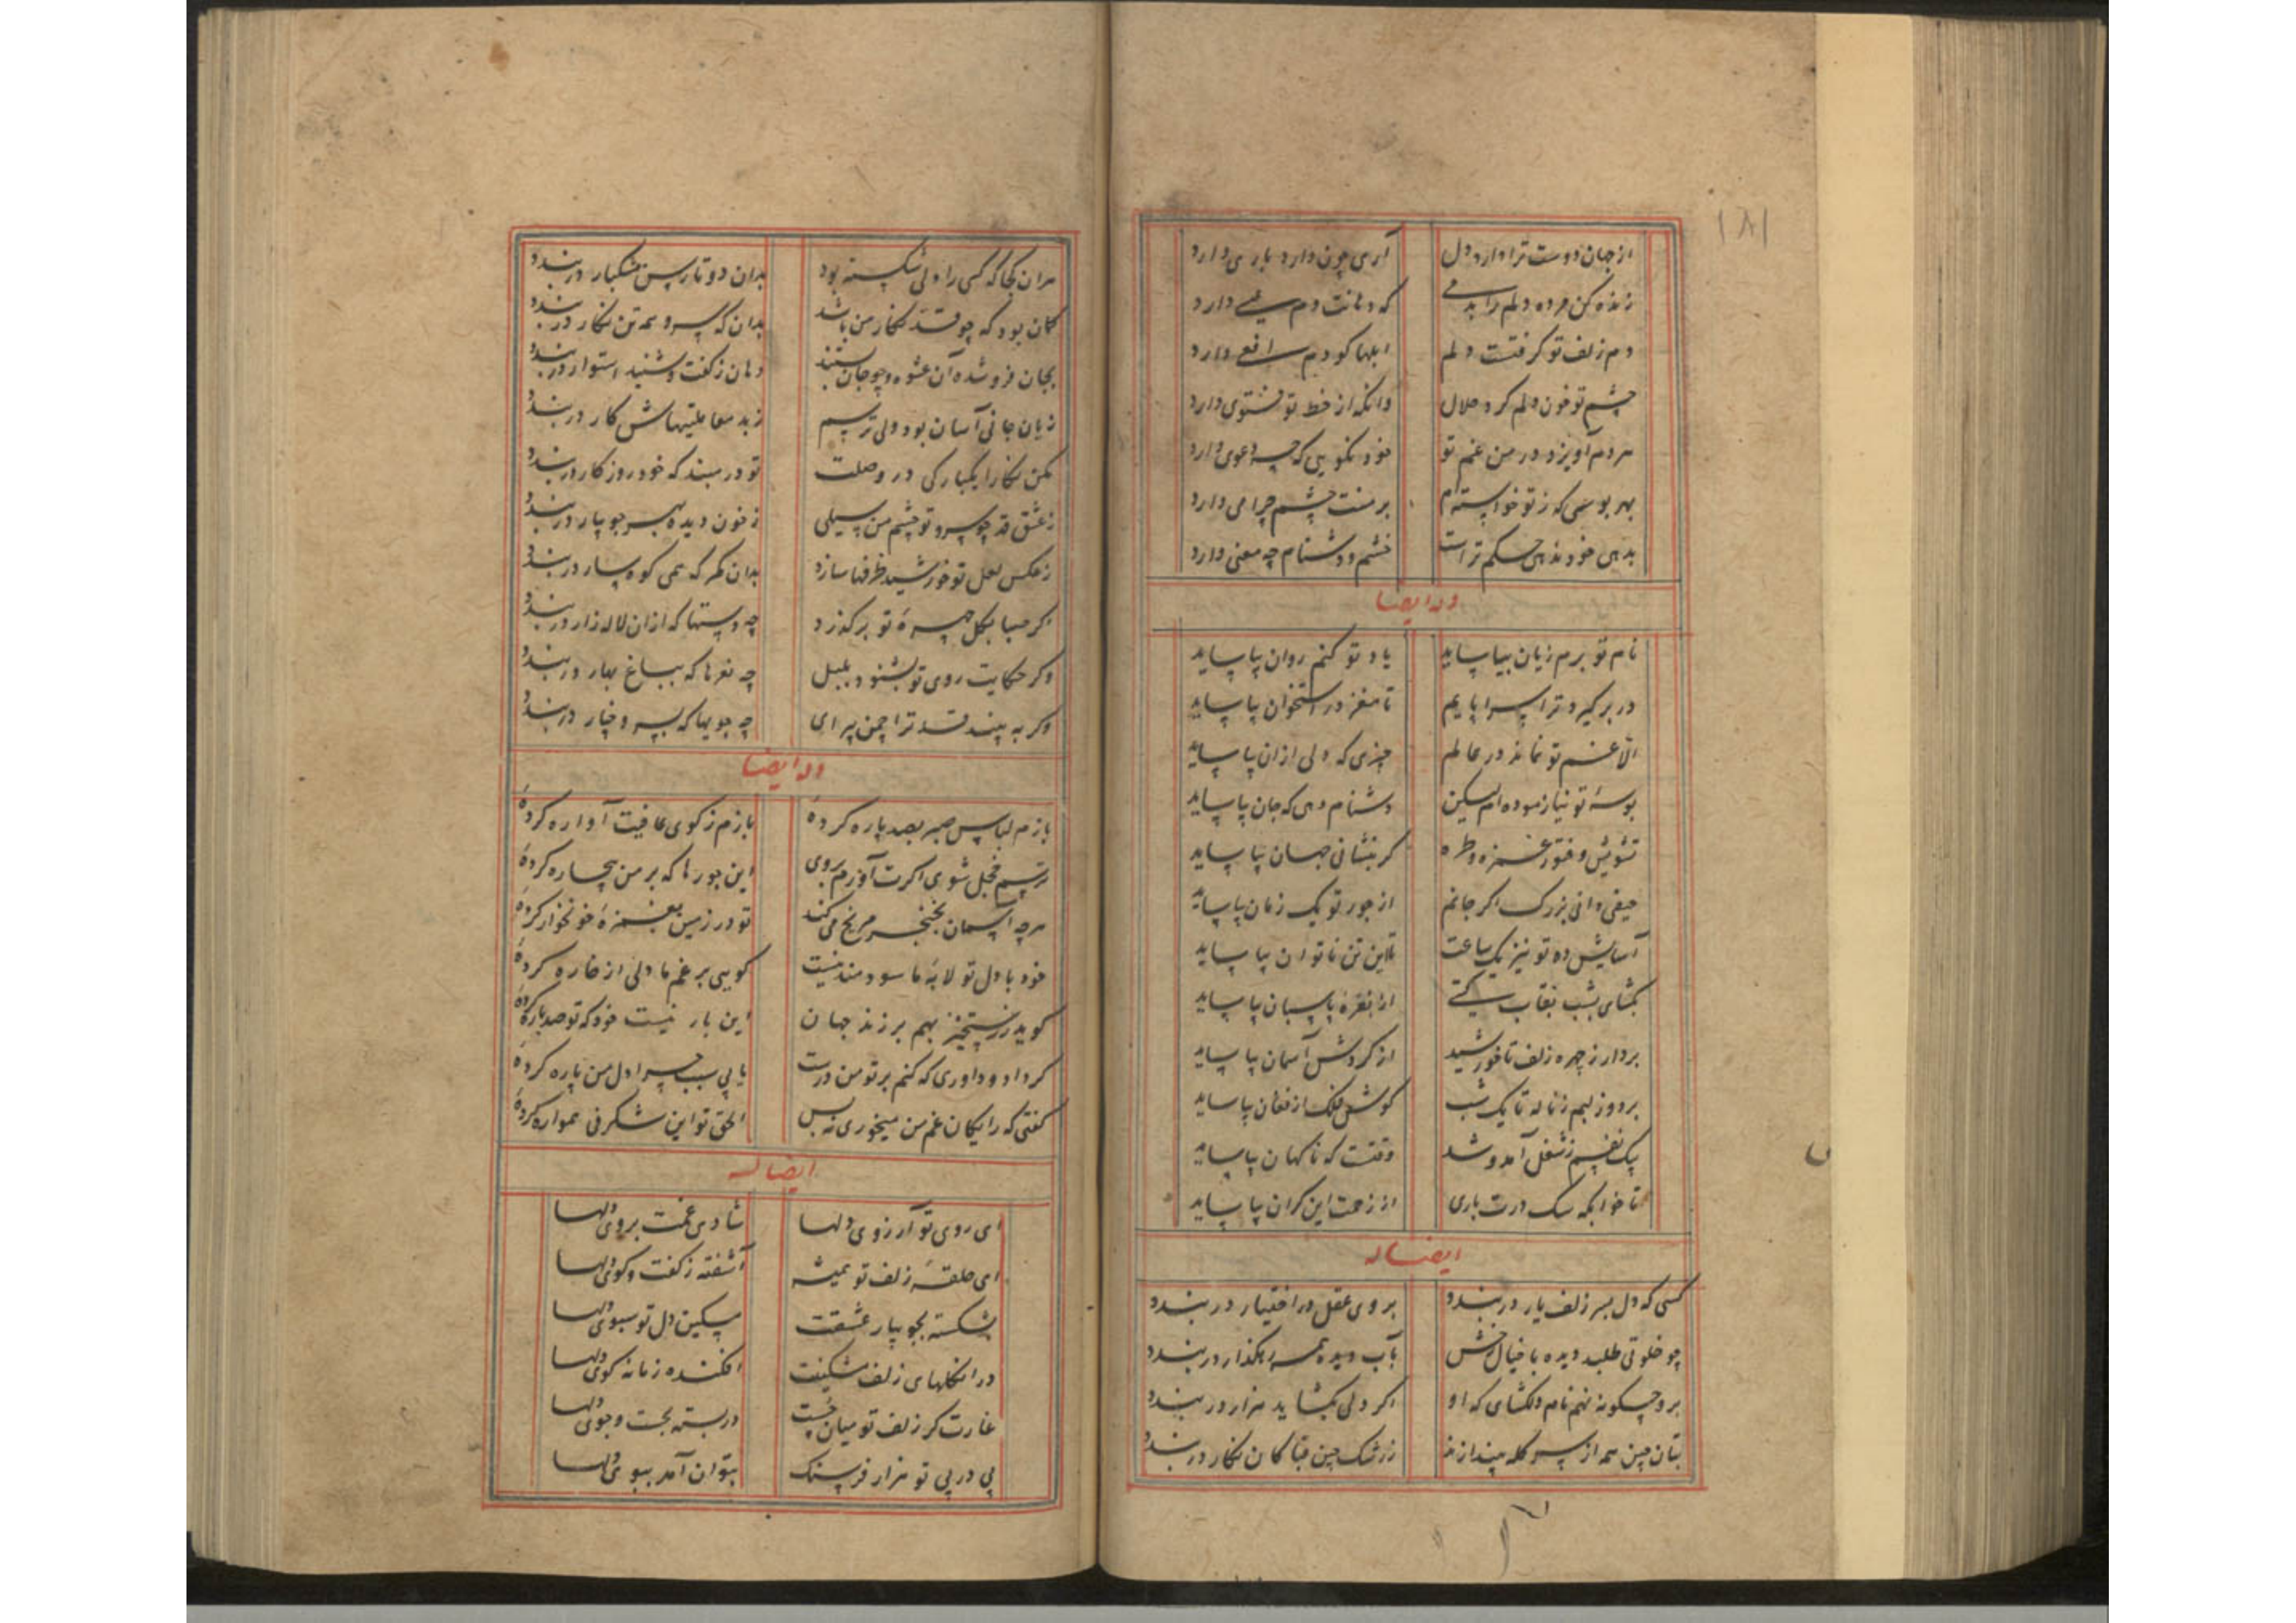 ۱۸۱
از جان دوست ترا دارد دل آری چون دارد باری دارد
زنده کن مرده دلم را بدمی که دهانت دم عیسی دارد
دم زلف تو گرفتست دلم ابلها کو دم افعی دارد
چشم تو خون دلم کرد حلال وانکه از خط تو فتوی دارد
مردم آویزد در من غم تو خود نکویی که چه دعوی دارد
بهر بوسی که ز تو خواسته‌ام بر منت چشم چرا می دارد
بدهی خود ندهی حکم تراست خشم و دشنام چه معنی دارد
وله ایضا
نام تو برم زبان بیاساید یاد تو کنم روان بیاساید
در بر گیرد ترا سراپایم تا مغز در استخوان بیاساید
الا غم تو نماند در عالم چیزی که دلی ازان بیاساید
بوسهٔ تو نیازموده‌ام لیکن دشنام دهی که جان بیاساید
تشویش و فتور غمزه و طره گر بنشانی جهان بیاساید
حیفی دانی بزرگ اگر جانم از جور تو یک زمان بیاساید
آسایش ده تو نیز یک ساعت تا این تن ناتوان بیاساید
بگشای بشب نقاب از نعره پاسبان بیاساید
بردار ز چهره زلف تا خورشید از گردش آسمان بیاساید
بردوز لبم ز ناله تا یک شب گوش فلک از فغان بیاساید
یک نفسم ز شغل آمد و شد وقتست که ناگهان بیاساید
تا خوابگه سگ درت باری از زحمت این گران بیاساید
ایضا له
کسی که دل بسر زلف یار دربندد بروی عقل در اختیار دربندد
چو خلوتی طلبد دیده با خیال خوش بآب دیده همه رهگذار دربندد
برو چگونه نهم نام دلگشای که او اگر دلی بگشاید هزار دربندد
بتان چین همه از سر کله بیندازند ز رشک چین قبا کان نگار دربندد
هران کجا که کسی را دلی شکسته بود بدان دو تا رسن مشکبار دربندد
گمان بود که چو قد نگار من باشد بدان که سرو همه تن نگار دربندد
بجان فروشد آن عشوه و چو جان بستند دهان ز گفت و شنید استوار دربندد
زیان جانی آسان بود ولی ترسم ز بد معاملیتهاش کار دربندد
مکن نگارا یکبارگی در وصلت تو در مبند که خود روزگار دربندد
ز عشق قد چو سرو تو چشم من سیلی ز خون دیده بهر جویبار دربندد
ز عکس لعل تو خورشید طرفها سازد بدان کمر که همی کوهسار دربندد
اگر صبا بگل چهرهٔ تو برگذرد چه دستها که ازان لاله زار دربندد
وگر حکایت روی تو بشنود بلبل چه نعرها که بباغ بهار دربندد
وگر به بیند قد ترا چمن پیرای چه جویها که بسرو و چنار دربندد
وله ایضا
بازم لباس صبر بصد پاره کردهٔ بازم ز کوی عافیت آواره کردهٔ
ترسم خجل شوی اگرت آورم بروی این جورها که بر من بیچاره کردهٔ
هرچ آسمان بخنجر مریخ می‌کند تو در زمین بغمزهٔ خونخواره کردهٔ
خود با دل تو لابهٔ ما سودمند نیست گویی برغم ما دلی از خاره کردهٔ
گوید ز رستخیز بهم برزند جهان این بار نیست خود که تو صد باره کردهٔ
گر داد و داوری که کنم بر تو من درست یا بی سبب چرا دل من پاره کردهٔ
گفتی که رایگان غم من میخوری نه بس الحق تو این شگرفی همواره کردهٔ
ایضا له
ای روی تو آرزوی دلها شادی غمت بروی دلها
ای حلقهٔ زلف تو همیشه آشفته ز گفت و گوی دلها
بشکسته بجویبار عشقت سنگین دل تو سبوی دلها
در انگلهای زلف مشکینت افکنده زمانه گوی دلها
غارت گر زلف تو میان چست دربسته بجست و جوی دلها
پی در پی تو هزار فرسنگ بتوان آمد ببوی دلها